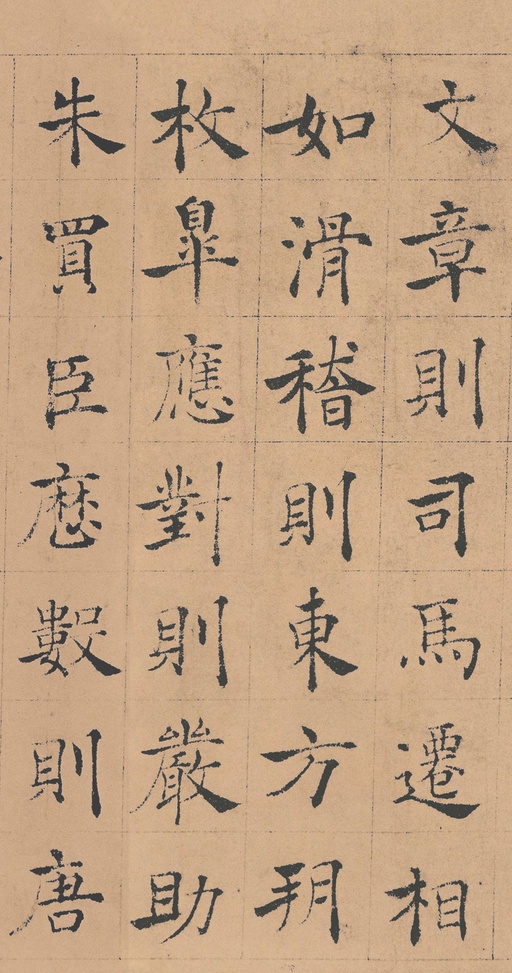 文章則司馬遷相
如滑稽則東方朔
枚皋應對則嚴助
朱買臣歷數則唐